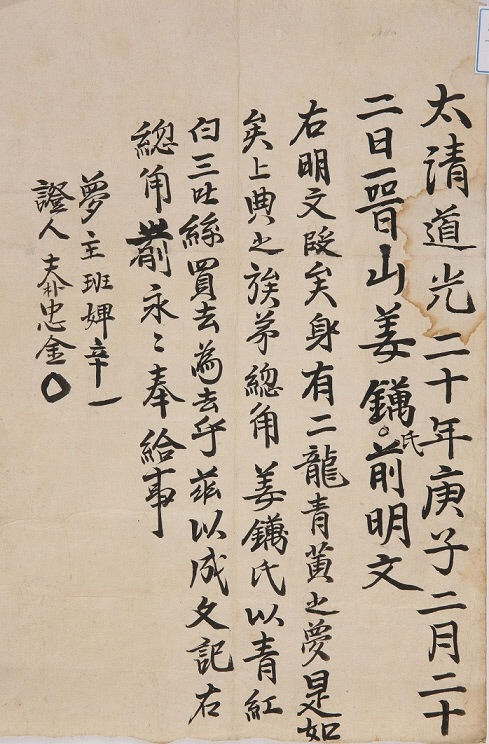 太清道光二十年庚子二月二十
二日晉山姜鏋氏前明文
右明文段矣身有二龍青黃之夢是如
矣上典之族弟總角姜鏋氏以青紅
白三吐絲買去為去乎茲以成文記右
總角前永〻奉給事
夢主班婢辛一
證人夫朴忠金○